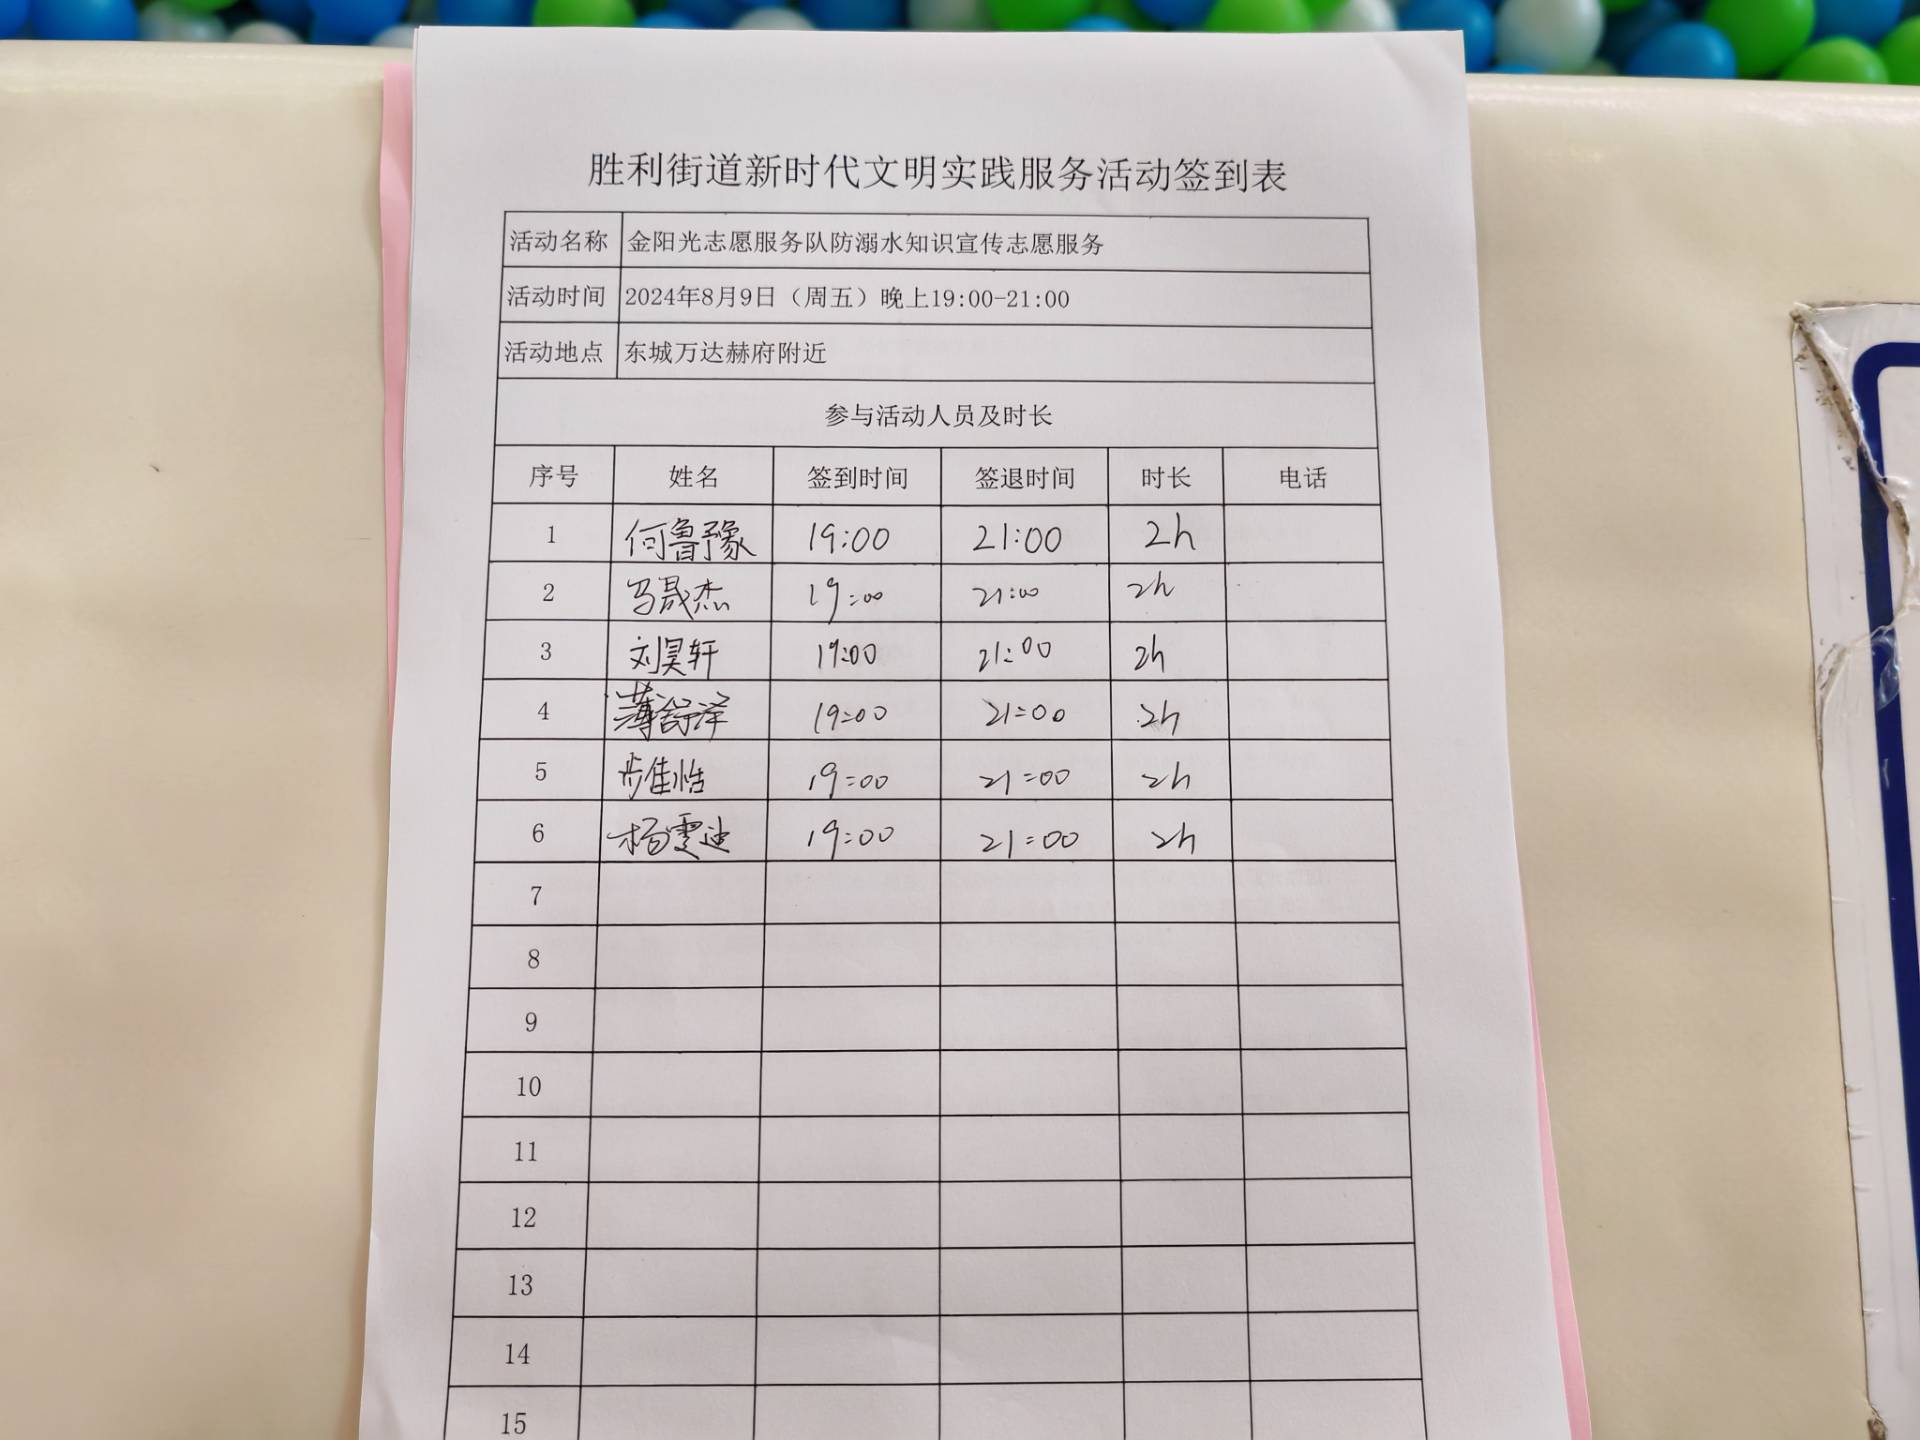 胜利街道新时代文明实践服务活动签到表
活动名称 金阳光志愿服务队防溺水知识宣传志愿服务
活动时间 2024年8月9日（周五）晚上19:00-21:00
活动地点 东城万达赫府附近
参与活动人员及时长
序号 姓名 签到时间 签退时间 时长 电话
1 何鲁豫 19:00 21:00 2h
2 马晟杰 19:00 21:00 2h
3 刘昊轩 19:00 21:00 2h
4 薄舒泽 19:00 21:00 2h
5 步佳恬 19:00 21:00 2h
6 杨雯迪 19:00 21:00 2h
7
8
9
10
11
12
13
14
15